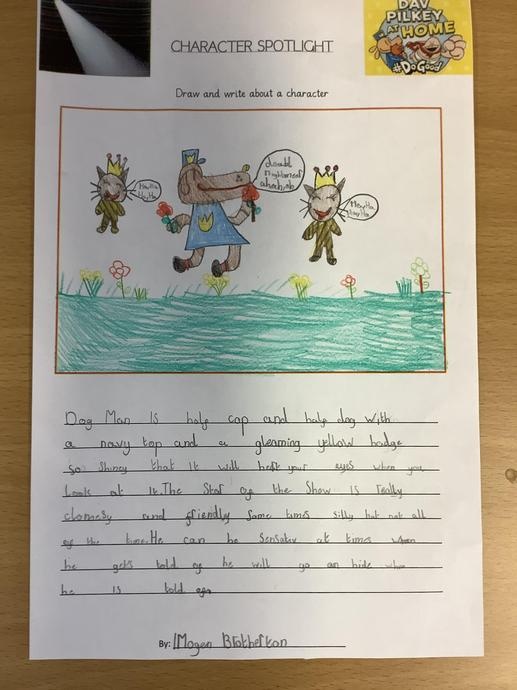 DAV
PILKEY
AT HOME
#DoGood
CHARACTER SPOTLIGHT
Draw and write about a character
ahahah
Dog Man Is half cop and half dog with
a navy top and a gleaming yellow badge
so shiney that it will heft your eyes when you
look at it. The Star of the Show is really
clomesy and friendly some times silly but not all
of the time. He can be sensativ at times when
he gets told of he will go an hide when
he is told off
By: IMogen Brotherton